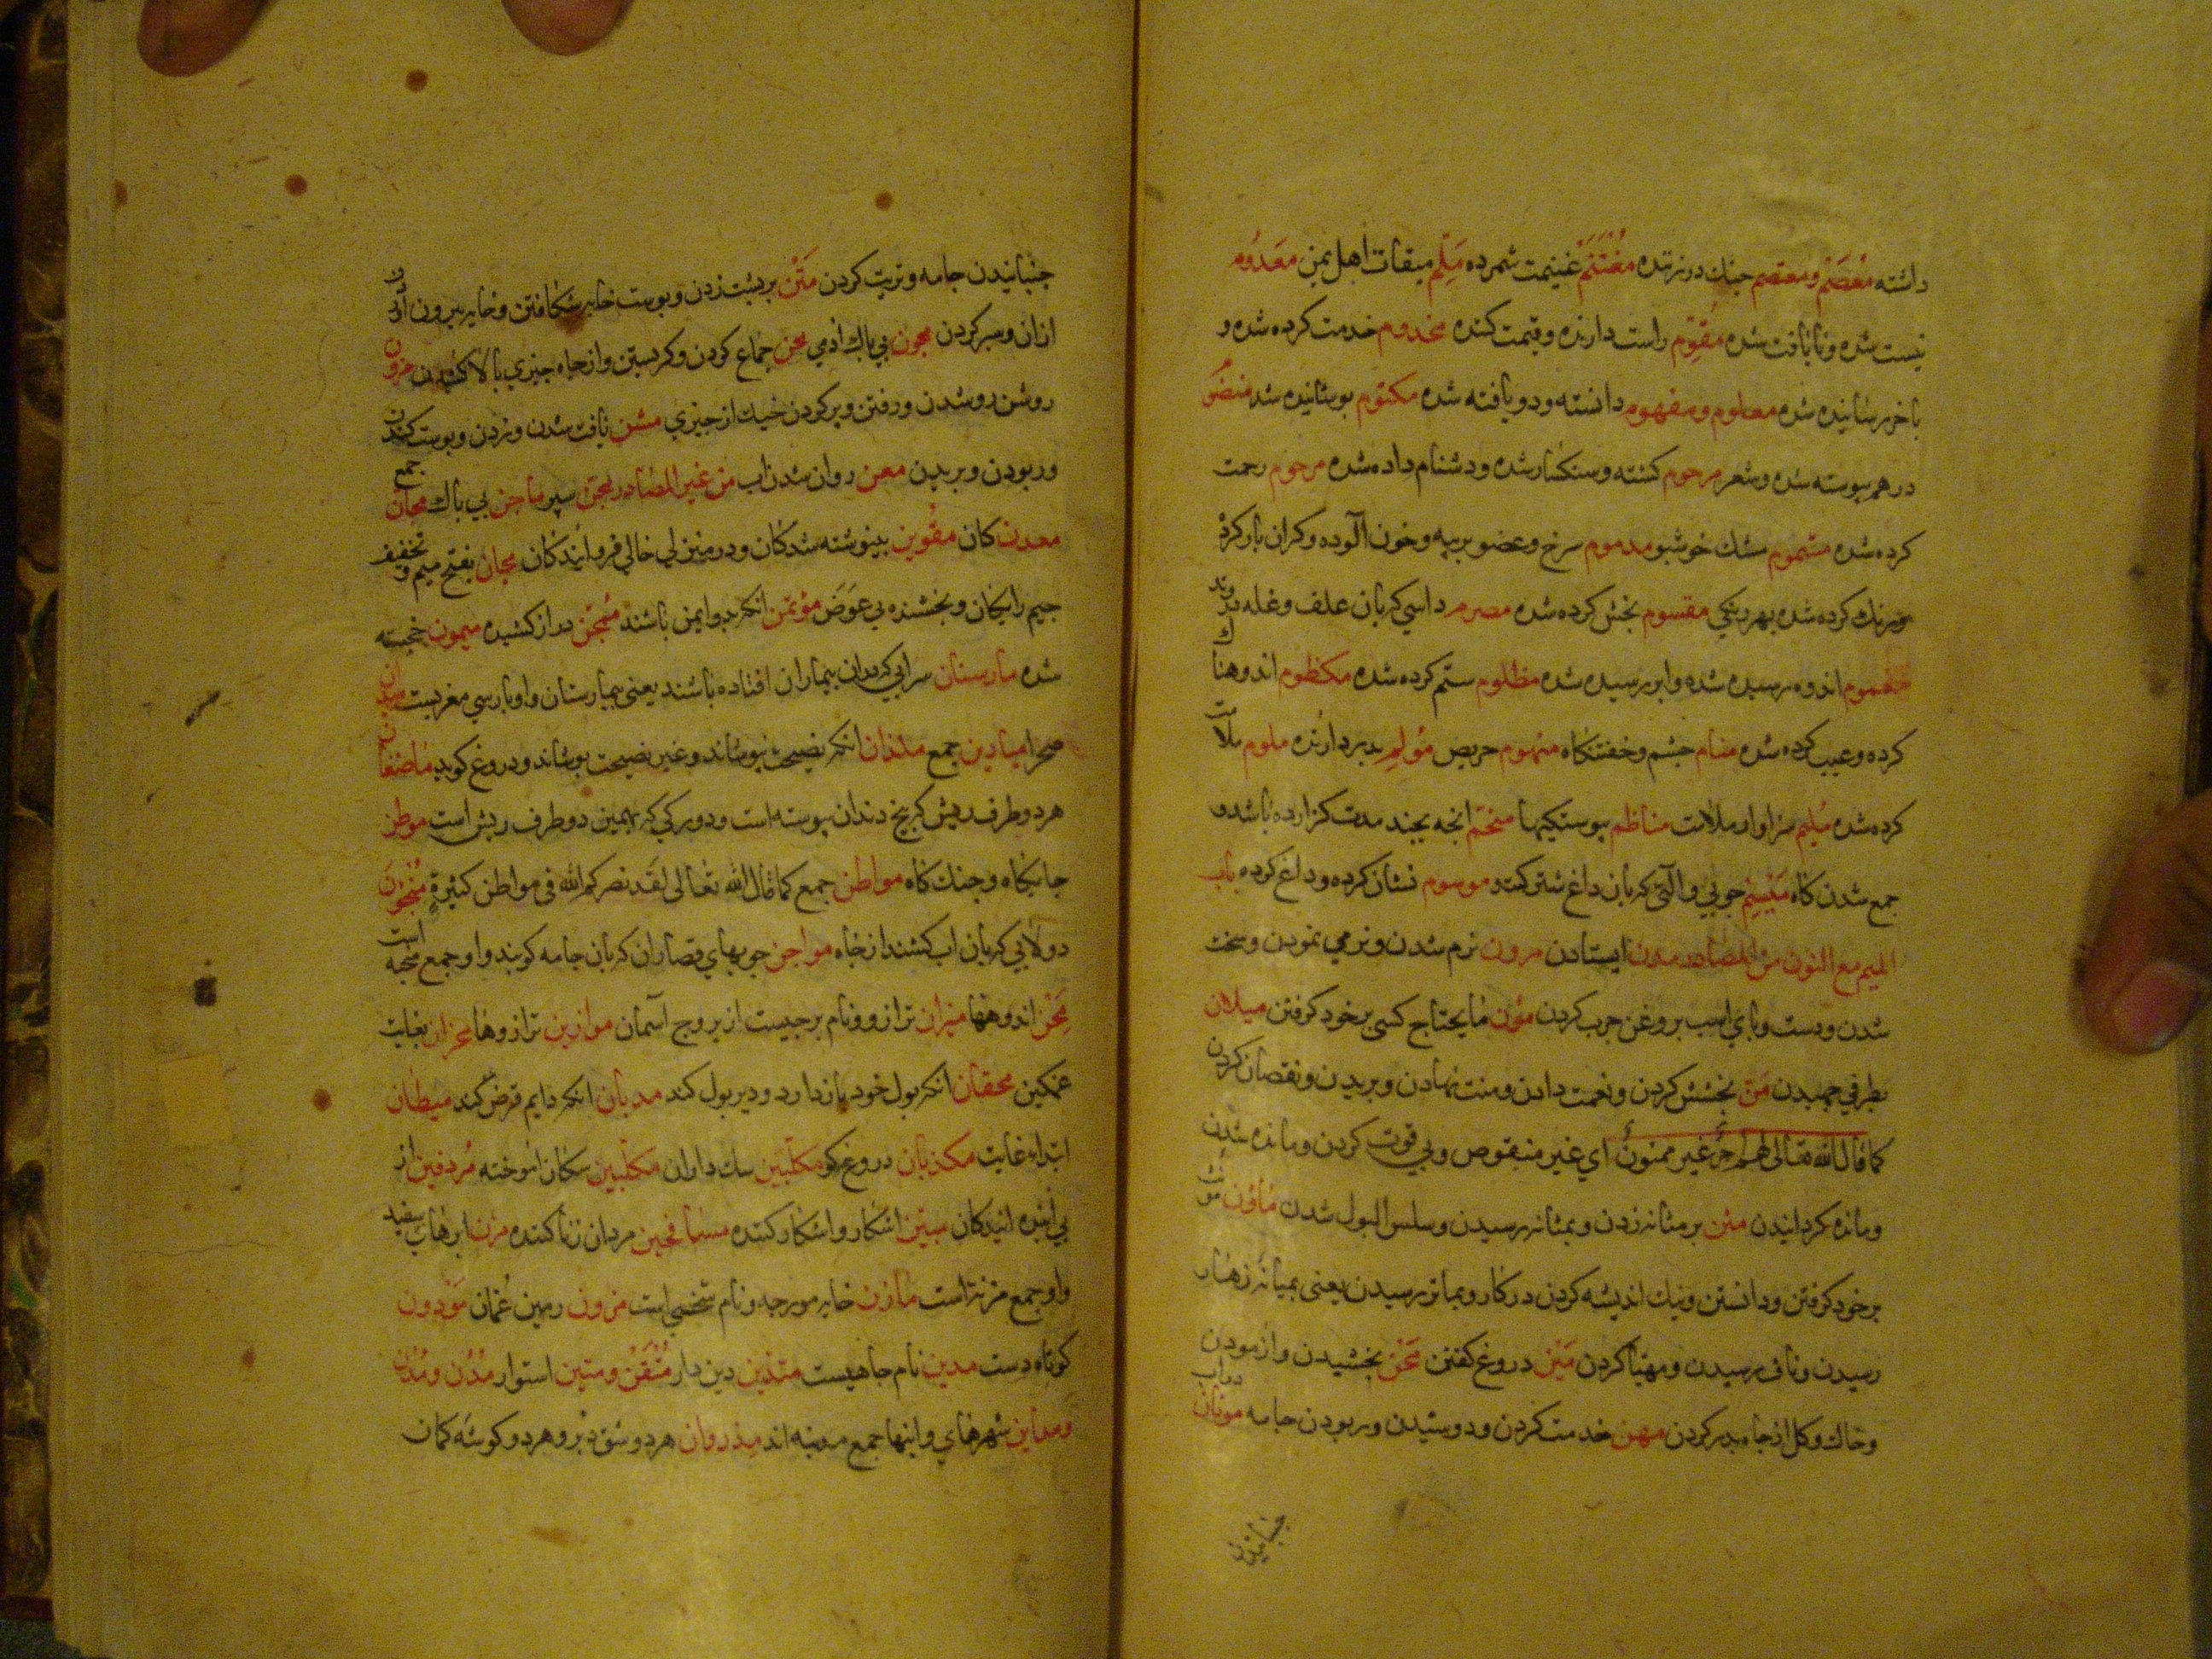 داشته مُعصَم ومعتصم جنك درزننده مغتنم غنيمت شمرده مَلِم ميقات اهل يمن معدوم
نيست شده ونايافت شده مُقوِّم راست دارنده وقيمت كننده مخدوم خدمت كرده شده و
باخررسانيده شده معلوم ومفهوم دانسته ودريافته شده مكتوم بوشانيده شد
درهم پيوسته شده وشعر مرجوم كشته وسنكسار شده ودشنام داده شده مرحوم رحمت
كرده شده مشموم مشك خوشبو مدموم سرخ وعضو برپيه وخون آلوده وكران بار كرد
ورنك كرده شده بهر رنكي مقسوم بخش كرده شده مصرم داسي كه بان علف وغله دروند
مغموم اندوه رسيده شده وابر رسيده شده مظلوم ستم كرده شده مكظوم اندوهناك
كرده وعيب كرده شده منام چشم وخفتنكاه منهوم حريص مؤلم بدرد آرنده ملوم ملامت
كرده شده مُليم سزاوار ملامت مناظم پيوستكيها منجّم انچه بچند مدت كزارده باشد و
جمع شدن كاه مَيْسِم جوبي والتي كه بان داغ شتر كنند موسوم نشان كرده وداغ كرده باب
الميم مع النون من المصادر مدن ايستادن مرون نرم شدن ونرمي نمودن وسخت
شدن ودست وباي اسب بروغن جرب كردن مؤن مايحتاج كسي برخود كرفتن ميلان
بطرفي جميدن مَنّ بخشش كردن ونعمت دادن ومنت نهادن وبريدن ونقصان كردن
كما قال الله تعالى لهم اجرٌ غير ممنون اي غير منقوص وبي قوت كردن ومانده شدن
ومانده كردانيدن مثن بر مثانه زدن وبمثانه رسيدن وسلس البول شدن ماؤن مونت
برخود كرفتن ودانستن ونيك انديشه كردن در كار وبمانه رسيدن يعني بميانه زهار
رسيدن وناف رسيدن ومهيّا كردن مَيْن دروغ كفتن مَحْن بخشيدن وازمودن
وخاك وكل از چاه بدر كردن مهن خدمت كردن ودوشيدن وربودن جامه موتان دواب
جنبانيدن
جنبانيدن جامه وتربيت كردن مَتْن بر پشت زدن وپوست خايه شكافتن وخايه بيرون آوردن
ازان وسير كردن مجون بي باك آدمي مخن جماع كردن وكريستن واز چاه چيزي بالا كشيدن مزون
روشن رو شدن ورفتن وپر كردن خيك از چيزي مشن يافت شدن وزدن وپوست كندن
وربودن وبريدن معن روان شدن اب من غير المصادر مجن سپر ماجن بي باك مجان جمع
معدن كان مقوين بينوشته شدكان ودر منزلي خالي فرو آيندكان مجان بفتح ميم وتخفيف
جيم رايكان وبخشنده بي عوض مؤتمن انكه بدو ايمن باشند دراز كشيده ميمون خجسته
شده مارستان سرايي كه دران بيماران افتاده باشند يعني بيمارستان واو پارسي معربست ميدان
صحرا ميادين جمع ملذان انكه نصيحت نپوشاند وغير نصيحت بپوشاند ودروغ كويد ماضغان
هر دو طرف ريش كه بيخ دندان پيوسته است ودو ركي كه بهمين دو طرف ريش است موطن
جايكاه وجنك كاه مواطن جمع كما قال الله تعالى لقد نصركم الله في مواطن كثيرةٍ منجنون
دولابي كه بان اب كشند از چاه مواجن چوبهاي قصاران كه بان جامه كوبند واو جمع ميجنه است
مِحَن اندوهها ميزان ترازو ونام برجيست از بروج آسمان موازين ترازوها محزان بغايت
غمكين محقان انكه بول خود بازدارد ودير بول كند مديان انكه دايم قرض كند ميطان
ابتداء غايت مكذبان دروغ كو مكلّبين سك داران مكلَّبين سكان آموخته مُردفين از
پي آينده ايندكان مبين اشكار واشكار كننده مسافحين مردان زنا كننده مزن ابرهاي سفيد
واو جمع مزنة است مازن خايه مورچه ونام شخصي است مزون زمين عُمان مَوْدون
كوتاه دست مدين نام جاهيست متدين دين دار مُتْقَن ومتين استوار مُدْن ومُدُن
ومداين شهرهاي واينها جمع مدينه اند مذروان هر دو شق دبر وهر دو كوشه كمان